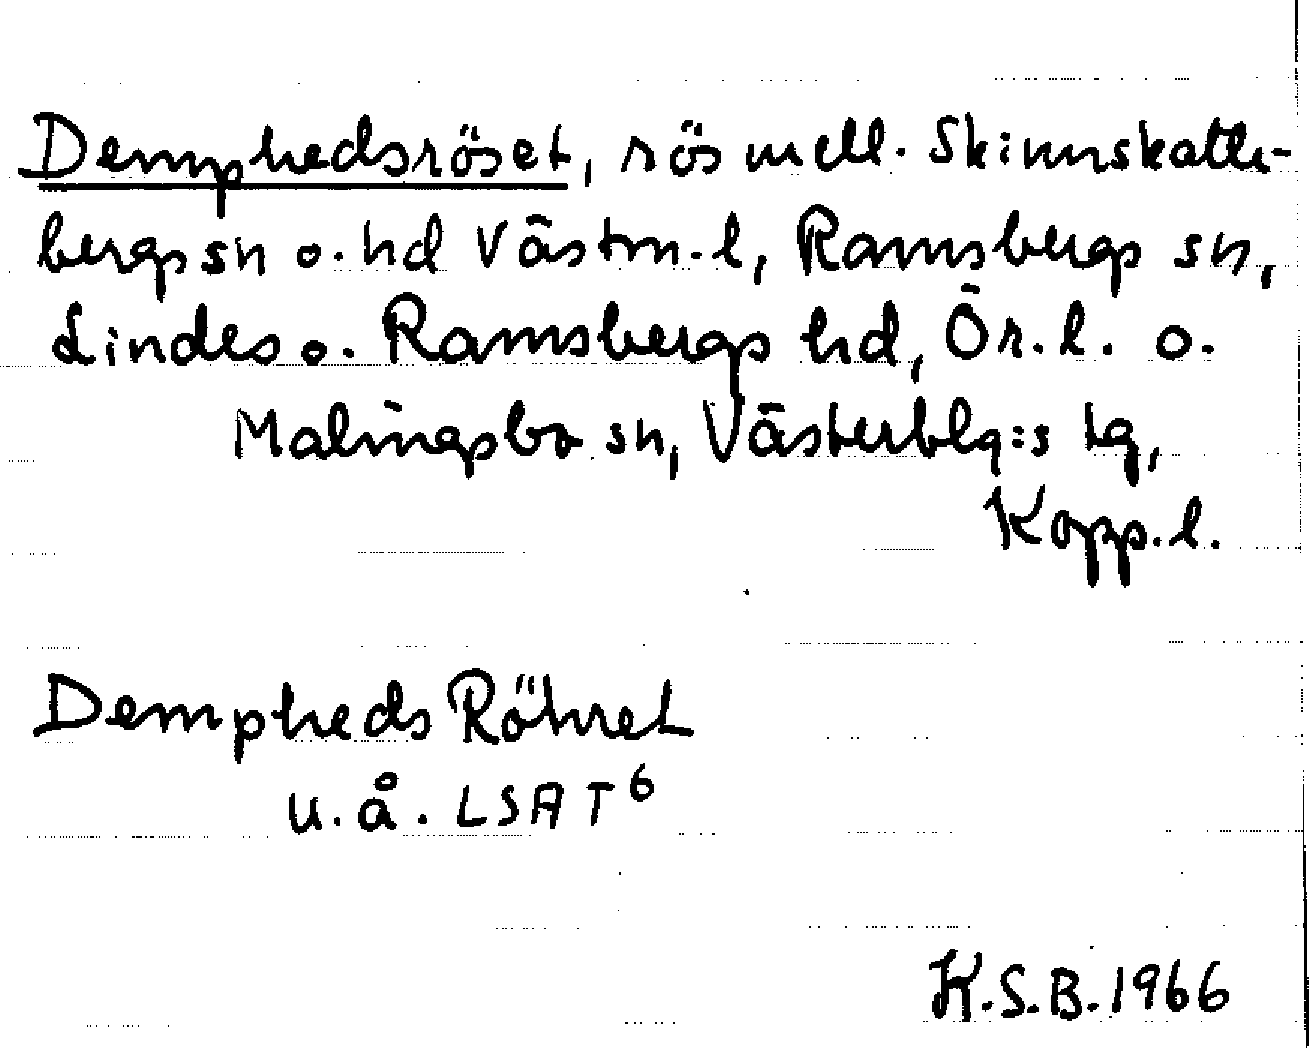 Demphedsröset, rös mell. Skinnskatte-
bergs sn o. hd Västm. l, Ramsbergs sn,
Lindes o. Ramsbergs hd, Ör. l. o.
Malingsbo sn, Västerblg:s tg,
Kopp. l.
Dempheds Röhret
u.å. LSA T⁶
K.S.B. 1966